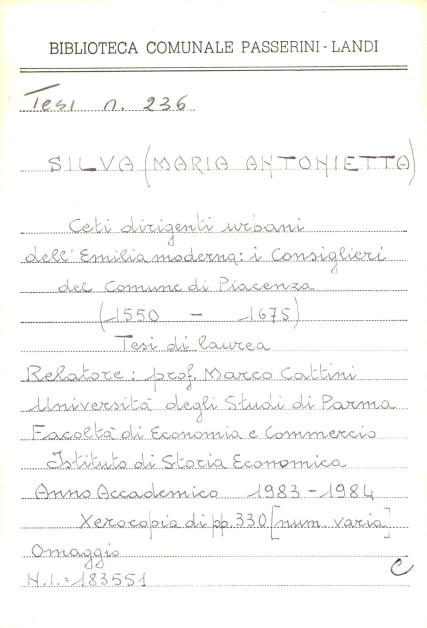 BIBLIOTECA COMUNALE PASSERINI - LANDI
Tesi n. 236
SILVA (MARIA ANTONIETTA)
Ceti dirigenti urbani
dell'Emilia moderna: i Consiglieri
del Comune di Piacenza
(1550 - 1675)
Tesi di laurea
Relatore: prof. Marco Cattini
Università degli Studi di Parma
Facoltà di Economia e Commercio
Istituto di Storia Economica
Anno Accademico 1983-1984
Xerocopia di pp. 330 [num. varia]
Omaggio
N.I.=183551
C